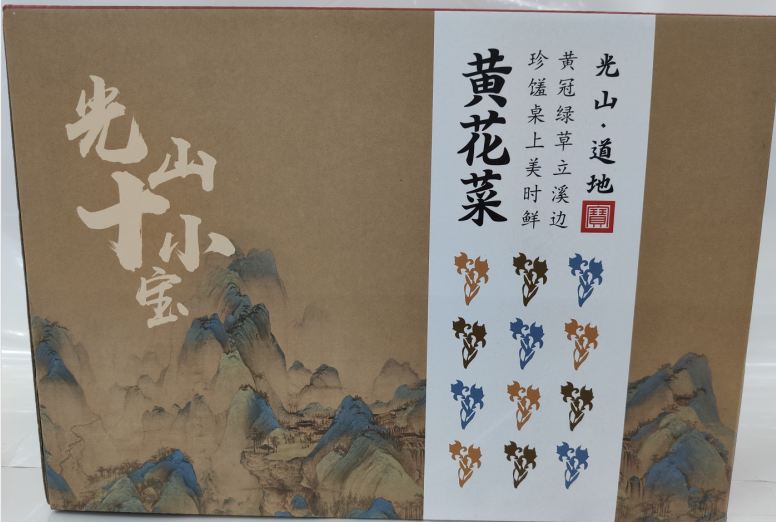 光山十小宝
光山·道地
寶
黄冠绿草立溪边
珍馐桌上美时鲜
黄花菜